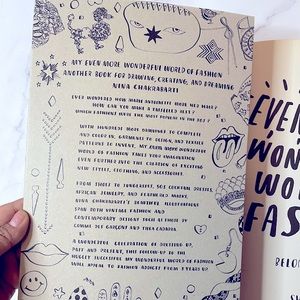 MY EVEN MORE WONDERFUL WORLD OF FASHION
ANOTHER BOOK FOR DRAWING, CREATING, AND DREAMING
NINA CHAKRABARTI
EVER WONDERED HOW MARIE ANTOINETTE WORE HER HAIR?
HOW CAN YOU MAKE A TWISTED RING?
WHICH PATTERNS ARE THE MOST POPULAR IN THE
WITH HUNDREDS MORE DRAWINGS TO COMPLETE
AND COLOR IN, GARMENTS TO DESIGN, AND TEXTILE
PATTERNS TO INVENT, MY EVEN MORE WONDERFUL
WORLD OF FASHION TAKES YOUR IMAGINATION
EVEN FURTHER INTO THE CREATION OF EXCITING
NEW STYLES, CLOTHING, AND ACCESSORIES.
FROM JEWELRY, AND
AFRICAN
NINA CHAKRABARTI'S BEAUTIFUL ILLUSTRATIONS
SPAN BOTH VINTAGE FASHION AND
CONTEMPORARY DESIGNS SUCH AS THOSE BY
COMME DES GARÇONS AND THEA CADABRA.
A WONDERFUL CELEBRATION OF DRESSING UP,
PAST AND PRESENT, THIS FOLLOW-UP TO THE
HUGELY SUCCESSFUL MY WONDERFUL WORLD OF FASHION
WILL APPEAL TO FASHION ADDICTS FROM 8 YEARS UP
EVE
WON
WO
FAS